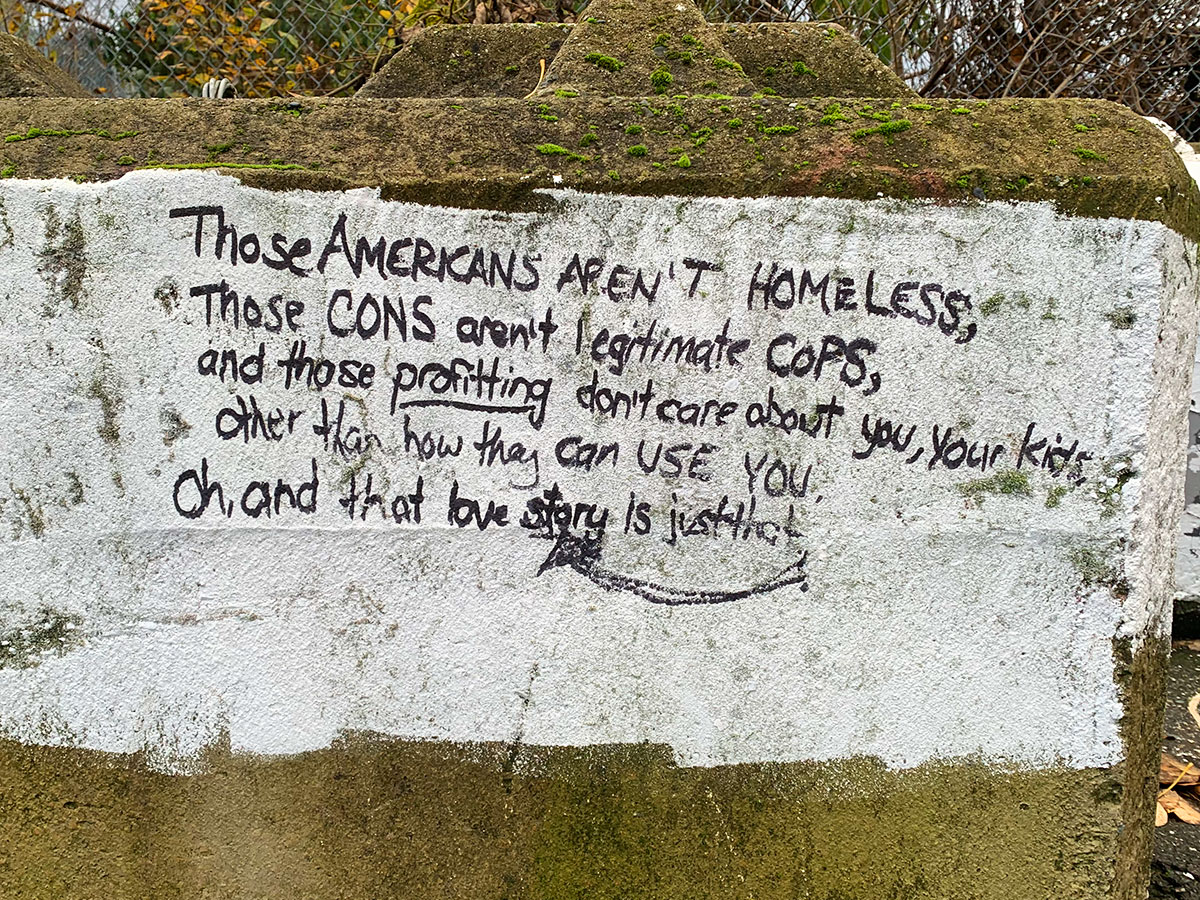 Those AMERICANS AREN'T HOMELESS,
Those CONS aren't legitimate COPS,
and those profitting don't care about you, your kids,
other than how they can USE YOU.
Oh, and that love story is just that